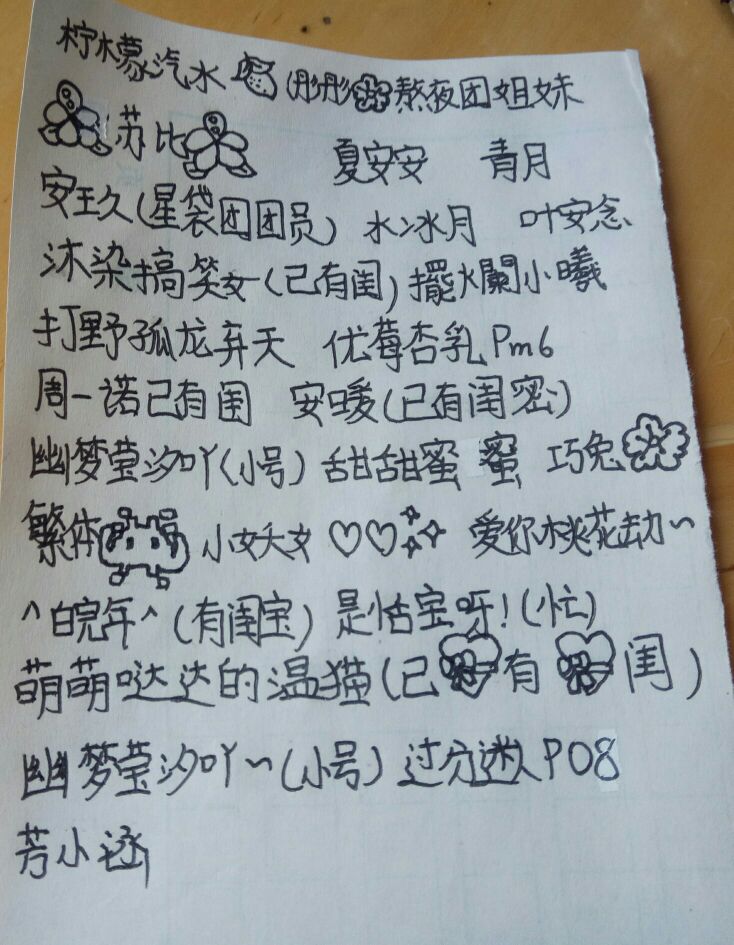 柠檬汽水 彤彤 熬夜团姐妹
苏比 夏安安 青月
安玖(星袋团团员) 水冰月 叶安念
沐染搞笑女(已有闺) 擺爛小曦
打野孤龙弃天 优莓杏乳Pm6
周一诺已有闺 安暖(已有闺密)
幽梦莹汐吖(小号) 甜甜蜜蜜 巧兔
繁体 小妖女 爱你桃花劫~
^皖年^(有闺宝) 是恬宝呀!(忙)
萌萌哒达的温猫(已有闺)
幽梦莹汐吖~(小号) 过分迷人P08
芳小涵